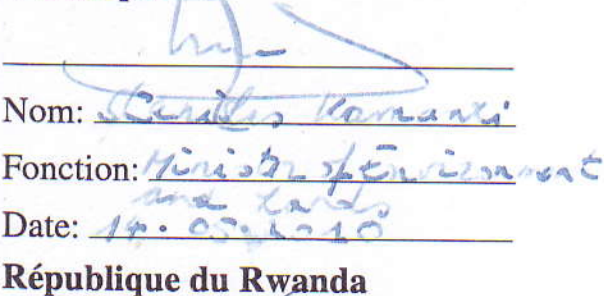 Nom: Stanislas Kamanzi
Fonction: Minister of Environment
and Lands
Date: 14.05.2010
République du Rwanda